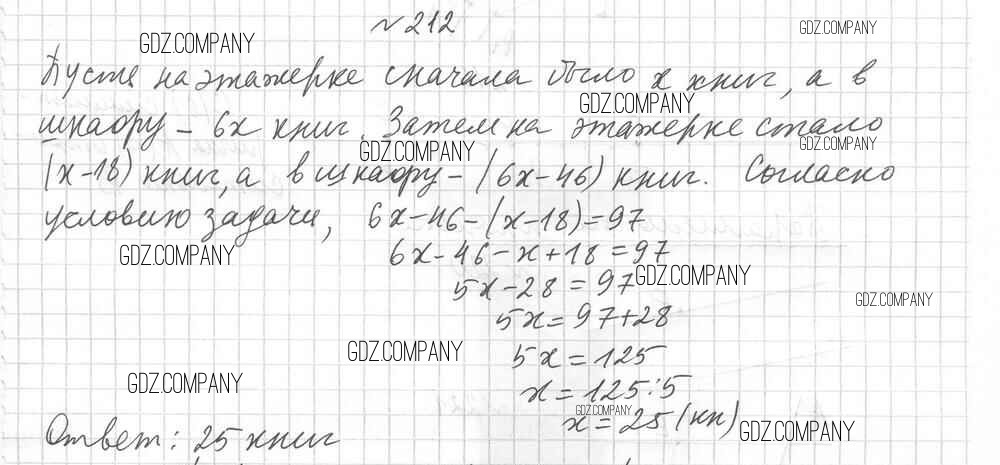 № 212
GDZ.COMPANY
GDZ.COMPANY
Пусть на этажерке сначала было x книг, а в
GDZ.COMPANY
шкафу – 6x книг. Затем на этажерке стало
GDZ.COMPANY
GDZ.COMPANY
(x-18) книг, а в шкафу – (6x-46) книг. Согласно
условию задачи, 6x-46-(x-18)=97
GDZ.COMPANY
6x-46-x+18=97
GDZ.COMPANY
5x-28=97
GDZ.COMPANY
5x=97+28
GDZ.COMPANY
5x=125
GDZ.COMPANY
x=125:5
GDZ.COMPANY
x=25 (кн)
GDZ.COMPANY
Ответ: 25 книг